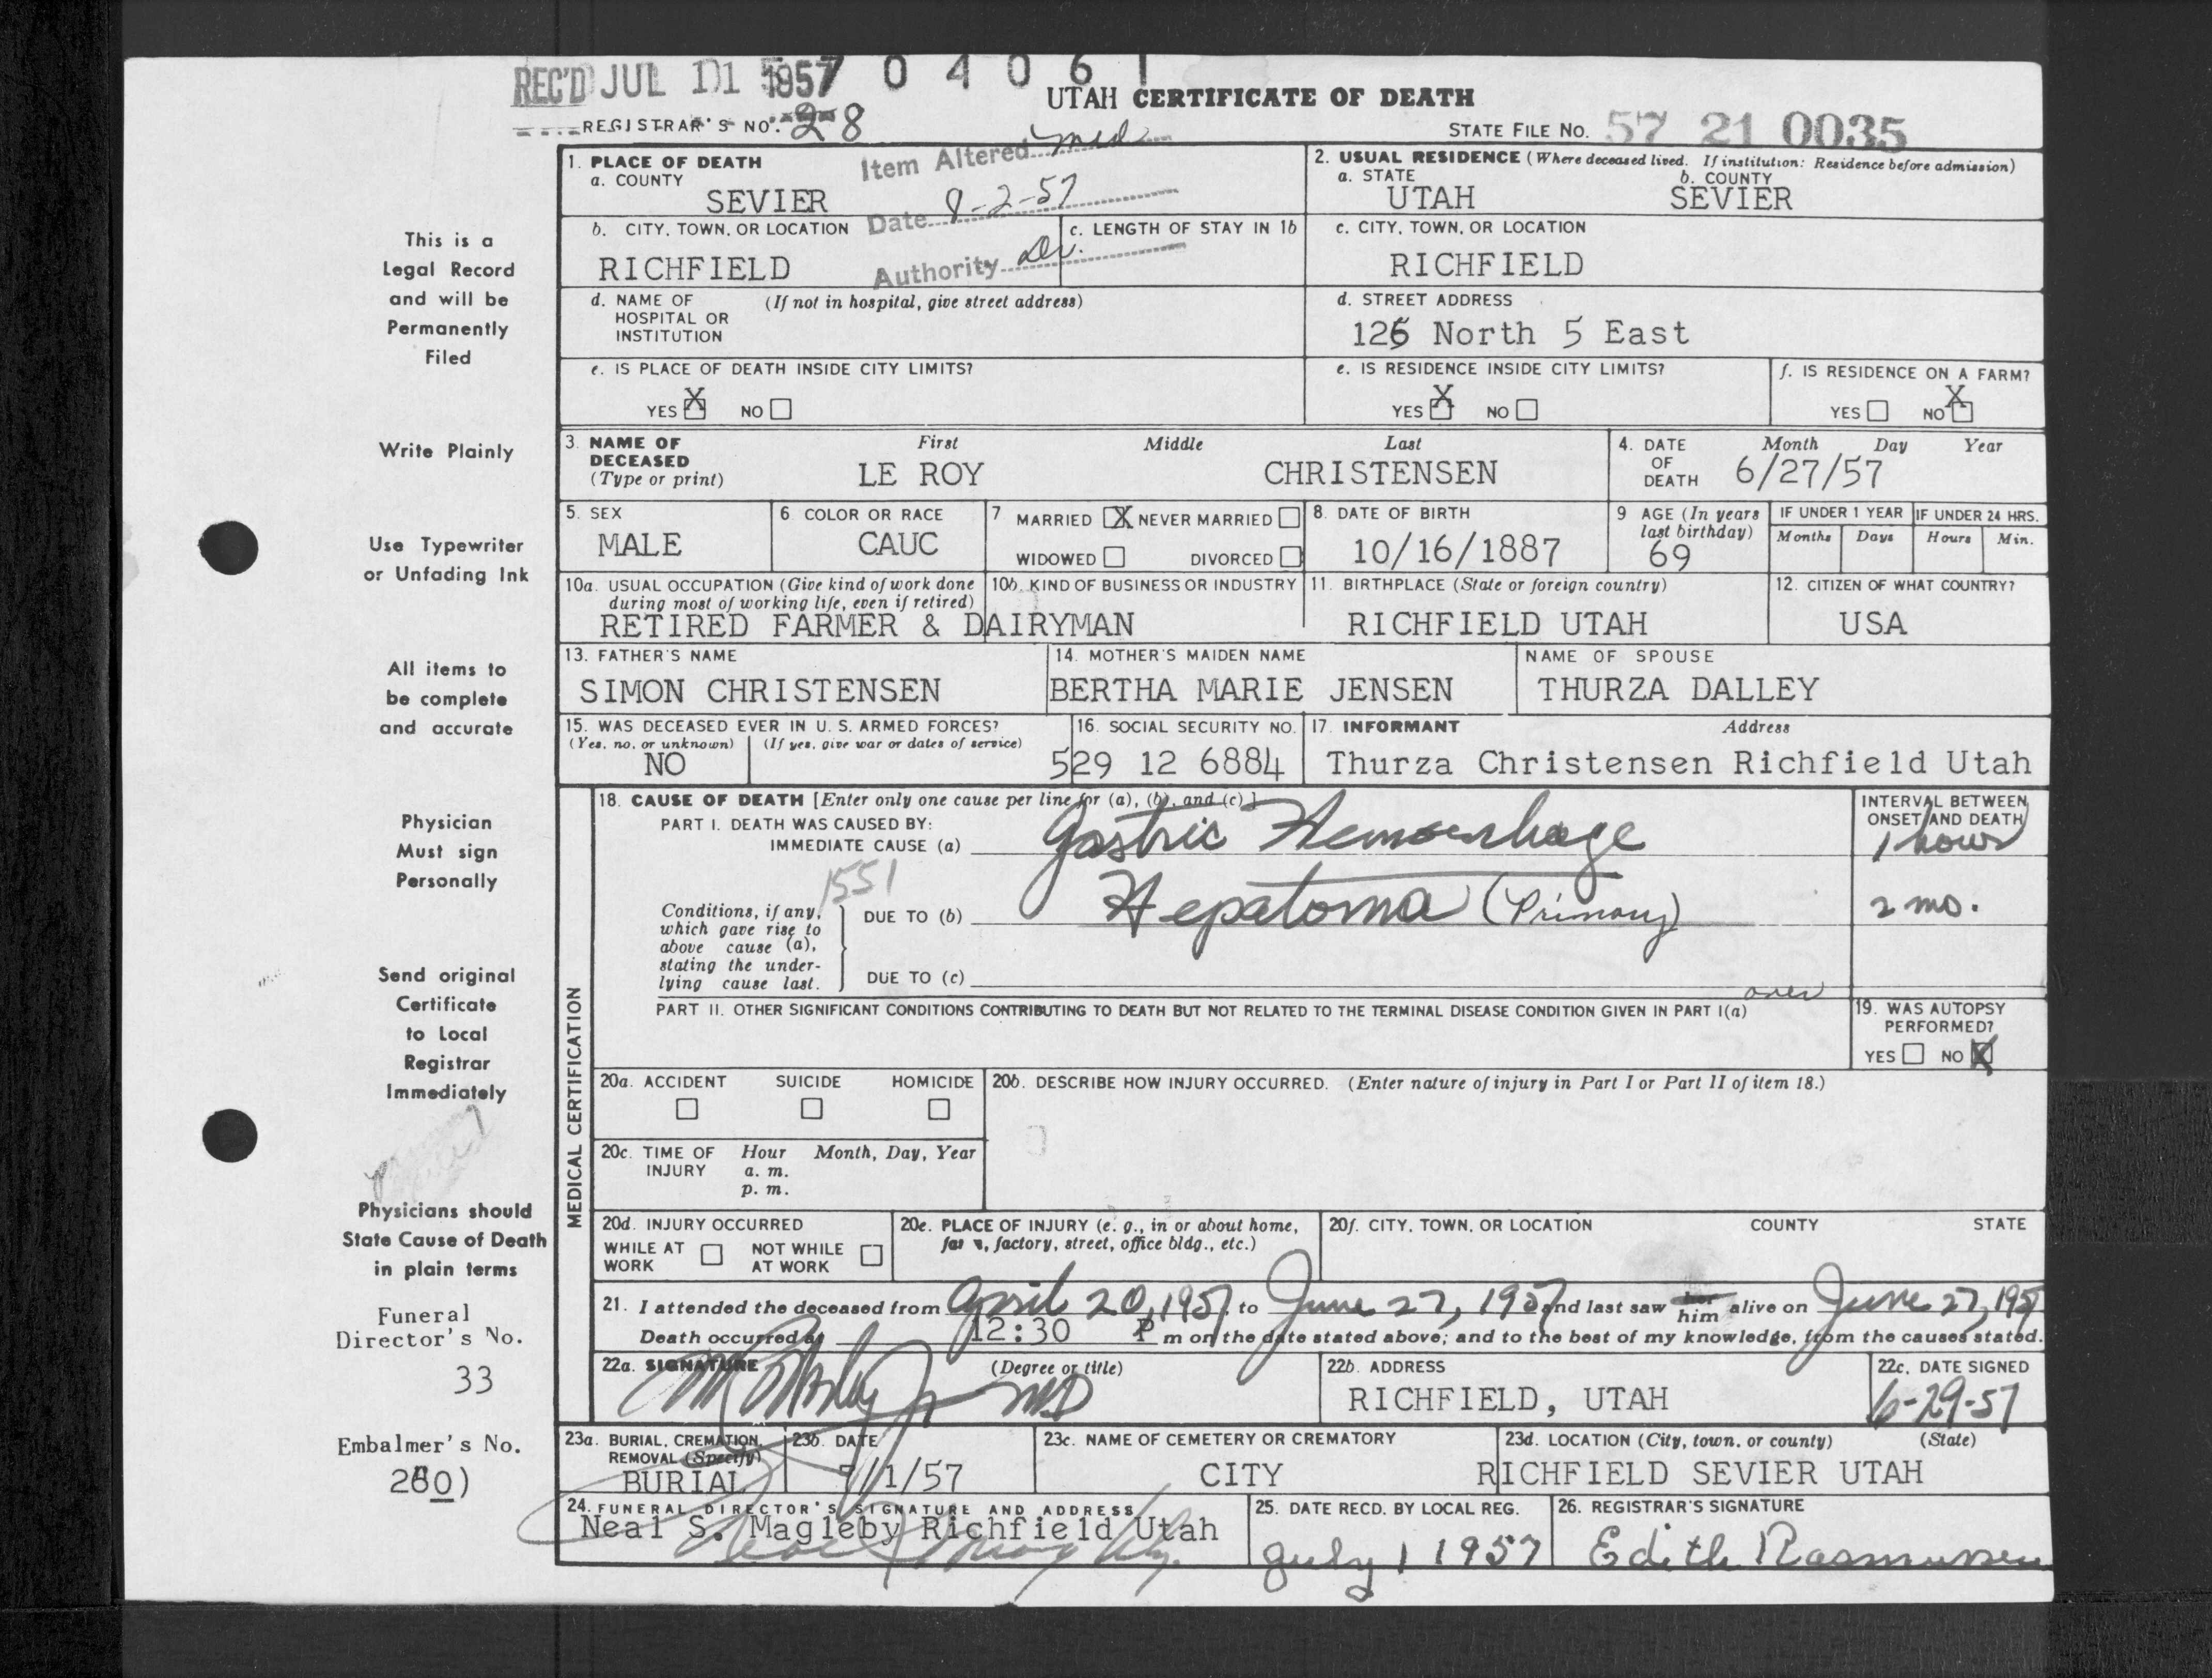 REC'D JUL 11 1957 0 4 0 6 1
UTAH CERTIFICATE OF DEATH
REGISTRAR'S NO. 28
STATE FILE NO. 57 21 0035
Item Altered med
Date 8-2-57
Authority Dr.
1. PLACE OF DEATH
a. COUNTY
SEVIER
b. CITY, TOWN, OR LOCATION
RICHFIELD
c. LENGTH OF STAY IN 1b
d. NAME OF HOSPITAL OR INSTITUTION (If not in hospital, give street address)
e. IS PLACE OF DEATH INSIDE CITY LIMITS?
YES X NO
2. USUAL RESIDENCE (Where deceased lived. If institution: Residence before admission)
a. STATE
UTAH
b. COUNTY
SEVIER
c. CITY, TOWN, OR LOCATION
RICHFIELD
d. STREET ADDRESS
126 North 5 East
e. IS RESIDENCE INSIDE CITY LIMITS?
YES X NO
f. IS RESIDENCE ON A FARM?
YES NO X
3. NAME OF DECEASED (Type or print)
First Middle Last
LE ROY CHRISTENSEN
4. DATE OF DEATH Month Day Year
6/27/57
5. SEX
MALE
6. COLOR OR RACE
CAUC
7 MARRIED X NEVER MARRIED
WIDOWED DIVORCED
8. DATE OF BIRTH
10/16/1887
9 AGE (In years last birthday)
69
IF UNDER 1 YEAR
Months Days
IF UNDER 24 HRS.
Hours Min.
10a. USUAL OCCUPATION (Give kind of work done during most of working life, even if retired)
10b. KIND OF BUSINESS OR INDUSTRY
RETIRED FARMER & DAIRYMAN
11. BIRTHPLACE (State or foreign country)
RICHFIELD UTAH
12. CITIZEN OF WHAT COUNTRY?
USA
13. FATHER'S NAME
SIMON CHRISTENSEN
14. MOTHER'S MAIDEN NAME
BERTHA MARIE JENSEN
NAME OF SPOUSE
THURZA DALLEY
15. WAS DECEASED EVER IN U. S. ARMED FORCES?
(Yes, no, or unknown) (If yes, give war or dates of service)
NO
16. SOCIAL SECURITY NO.
529 12 6884
17. INFORMANT Address
Thurza Christensen Richfield Utah
MEDICAL CERTIFICATION
18. CAUSE OF DEATH [Enter only one cause per line for (a), (b), and (c).]
PART I. DEATH WAS CAUSED BY:
IMMEDIATE CAUSE (a) Gastric Hemorrhage
1551
Conditions, if any, which gave rise to above cause (a), stating the underlying cause last.
DUE TO (b) Hepatoma (Primary)
DUE TO (c)
over
INTERVAL BETWEEN ONSET AND DEATH
1 hour
2 mo.
PART II. OTHER SIGNIFICANT CONDITIONS CONTRIBUTING TO DEATH BUT NOT RELATED TO THE TERMINAL DISEASE CONDITION GIVEN IN PART I(a)
19. WAS AUTOPSY PERFORMED?
YES NO X
20a. ACCIDENT SUICIDE HOMICIDE
20b. DESCRIBE HOW INJURY OCCURRED. (Enter nature of injury in Part I or Part II of item 18.)
20c. TIME OF INJURY Hour Month, Day, Year
a. m.
p. m.
20d. INJURY OCCURRED
WHILE AT WORK NOT WHILE AT WORK
20e. PLACE OF INJURY (e. g., in or about home, farm, factory, street, office bldg., etc.)
20f. CITY, TOWN, OR LOCATION COUNTY STATE
21. I attended the deceased from April 20, 1957, to June 27, 1957 and last saw her him alive on June 27, 1957
Death occurred at 12:30 P m on the date stated above; and to the best of my knowledge, from the causes stated.
22a. SIGNATURE (Degree or title)
MD
22b. ADDRESS
RICHFIELD, UTAH
22c. DATE SIGNED
6-29-57
23a. BURIAL, CREMATION, REMOVAL (Specify)
BURIAL
23b. DATE
7/1/57
23c. NAME OF CEMETERY OR CREMATORY
CITY
23d. LOCATION (City, town, or county) (State)
RICHFIELD SEVIER UTAH
24. FUNERAL DIRECTOR'S SIGNATURE AND ADDRESS
Neal S. Magleby Richfield Utah
25. DATE RECD. BY LOCAL REG.
July 1 1957
26. REGISTRAR'S SIGNATURE
Edith Rasmussen
This is a
Legal Record
and will be
Permanently
Filed
Write Plainly
Use Typewriter
or Unfading Ink
All items to
be complete
and accurate
Physician
Must sign
Personally
Send original
Certificate
to Local
Registrar
Immediately
Physicians should
State Cause of Death
in plain terms
Funeral
Director's No.
33
Embalmer's No.